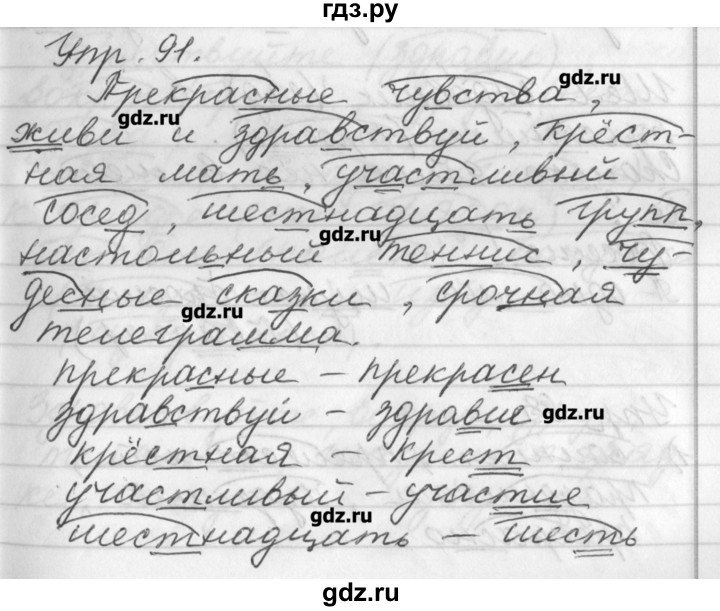 гдз.ру
Упр. 91.
Прекрасные чувства,
живи и здравствуй, крёст-
ная мать, участливый
сосед, шестнадцать групп,
настольный теннис, чу-
десные сказки, срочная
телеграмма.
прекрасные – прекрасен
здравствуй – здравие
крёстная – крест
участливый – участие
шестнадцать – шесть
gdz.ru
gdz.ru
gdz.ru
gdz.ru
gdz.ru
gdz.ru
gdz.ru